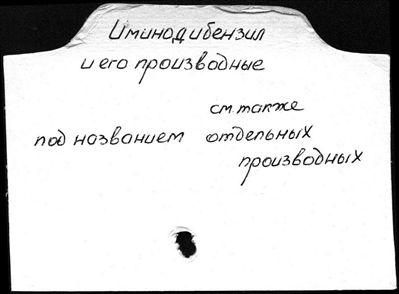 Иминодибензил
и его производные
см. также
под названием отдельных
производных